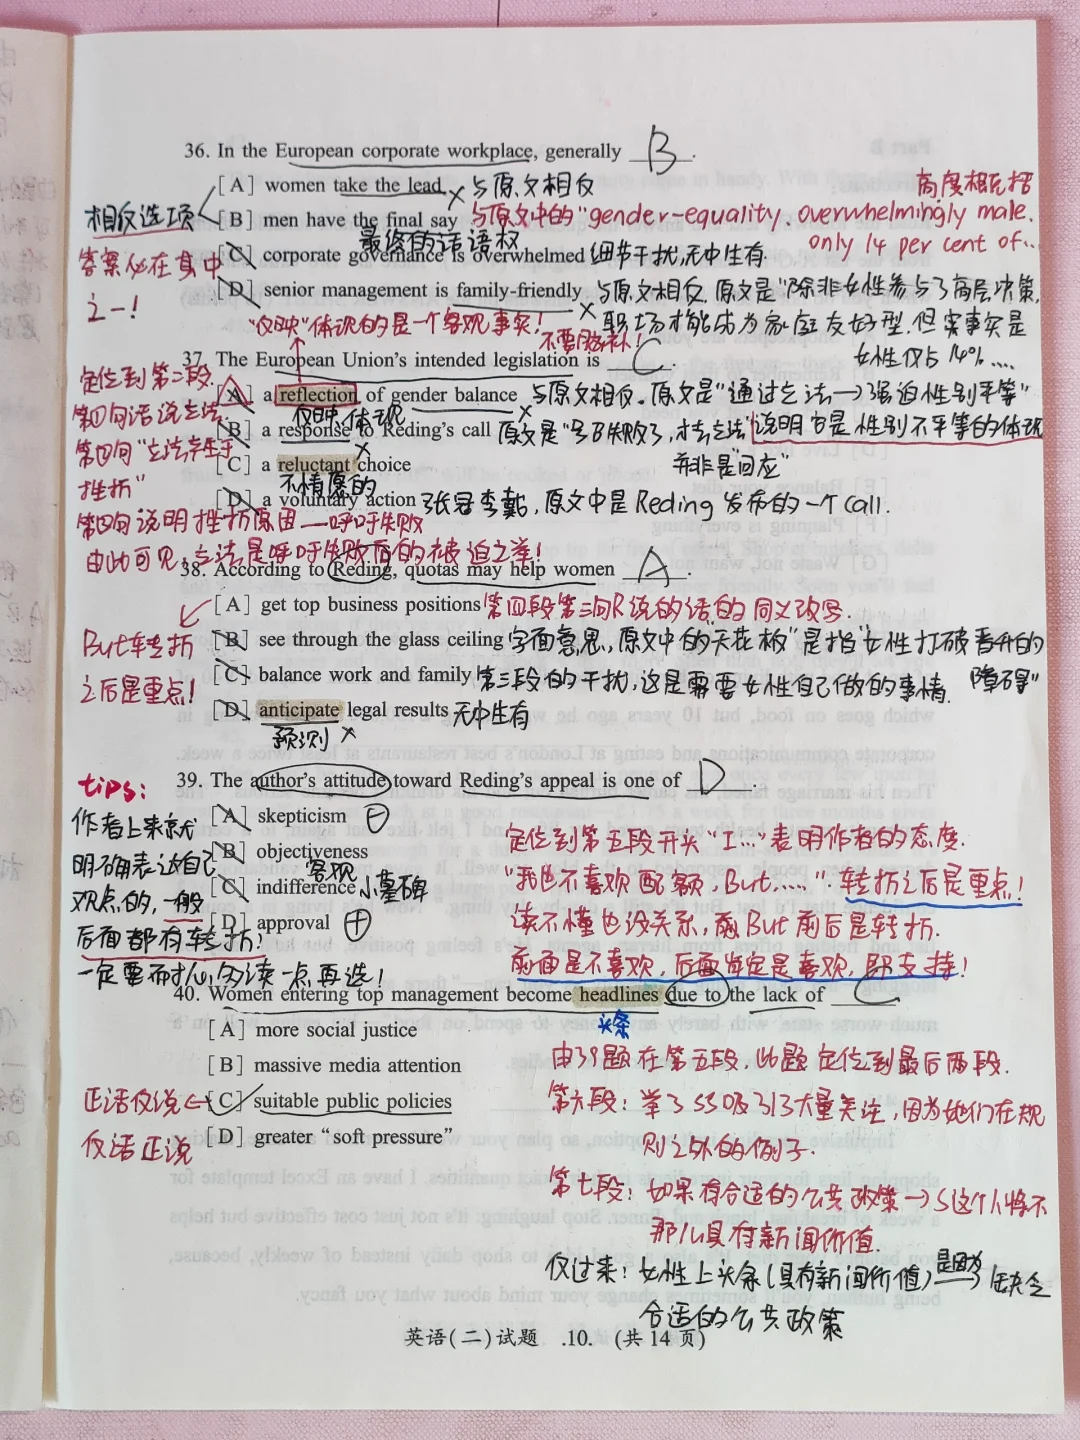 36. In the European corporate workplace, generally B.
[A] women take the lead × 与原文相反
高度概括
相反选项
[B] men have the final say 与原文中的"gender-equality, overwhelmingly male.
最终的话语权
only 14 per cent of...
答案必在其中
之一!
[C] corporate governance is overwhelmed 细节干扰,无中生有.
[D] senior management is family-friendly × 与原文相反.原文是"除非女性参与了高层决策,
职场才能成为家庭友好型.但实事实是
女性仅占14%....
"反映"体现的是一个客观事实!
不要脑补!
37. The European Union's intended legislation is C.
定位到第二段.
[A] a reflection of gender balance × 与原文相反。原文是"通过立法→强迫性别平等"
反映,体现
第四句话说立法.
[B] a response to Reding's call 原文是"号召失败了,才去立法"说明它是性别不平等的体现
×
并非是"回应"
第四句"立法产生于
挫折"
[C] a reluctant choice
不情愿的
[D] a voluntary action 张冠李戴,原文中是Reding发布的一个call.
第四句说明挫折原因——呼吁失败
由此可见,立法是呼吁失败后的被迫之举!
38. According to Reding, quotas may help women A.
[A] get top business positions 第四段第三句R说的话的同义改写.
But转折
之后是重点!
[B] see through the glass ceiling 字面意思,原文中的"天花板"是指"女性打破晋升的
障碍"
[C] balance work and family 第三段的干扰,这是需要女性自己做的事情.
[D] anticipate legal results 无中生有
预测 ×
39. The author's attitude toward Reding's appeal is one of D.
tips:
作者上来就
明确表达自己
观点的,一般
后面都有转折!
一定要耐心,多读一点再选!
[A] skepticism ⊖
[B] objectiveness
客观
[C] indifference 小墓碑
[D] approval ⊕
定位到第五段开头"I..."表明作者的态度.
"我也不喜欢配额,But......".转折之后是重点!
读不懂也没关系,But前后是转折.
前面是不喜欢,后面肯定是喜欢,即支持!
40. Women entering top management become headlines due to the lack of C
头条
[A] more social justice
[B] massive media attention
[C] suitable public policies
[D] greater "soft pressure"
正话反说
反话正说
由39题在第五段,此题定位到最后两段.
第六段:举了SS吸引了大量关注,因为她们在规
则之外的例子.
第七段:如果有合适的公共政策→S这个人将不
那么具有新闻价值.
反过来:女性上头条(具有新闻价值)是因为→缺乏
合适的公共政策
英语(二)试题 .10. (共14页)